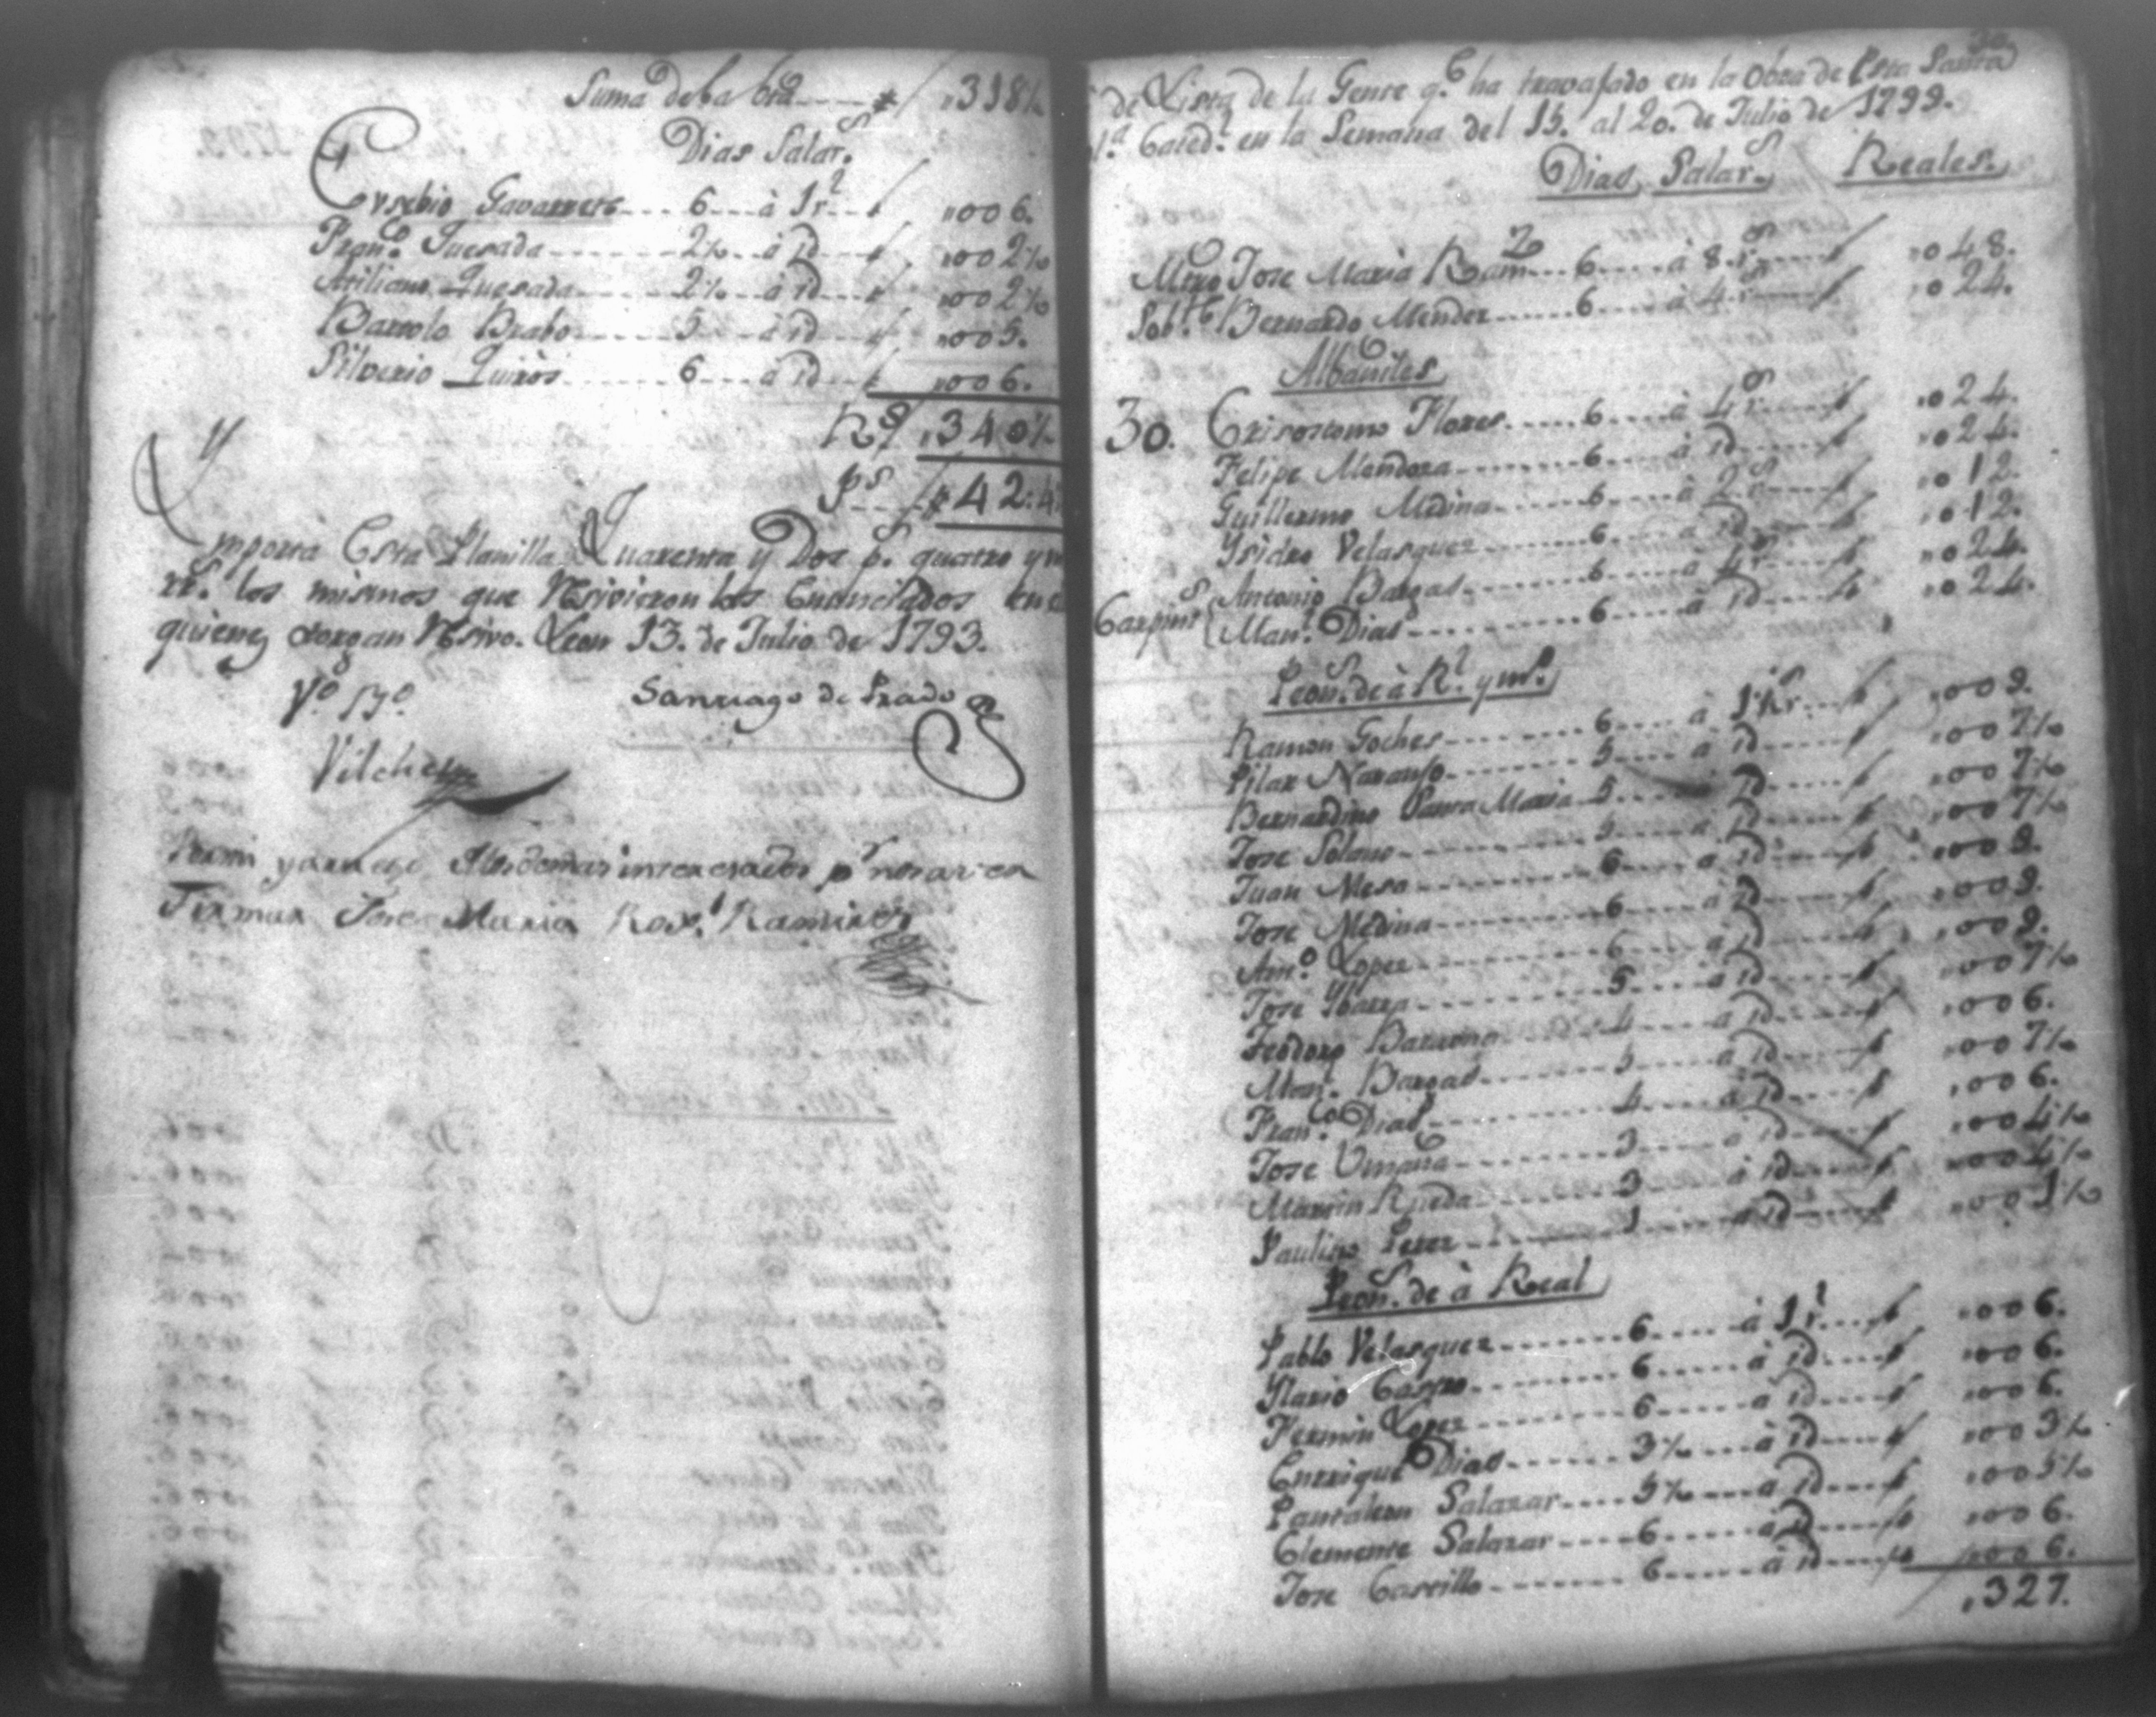 Suma de la bta---- # / „318½
Dias Salar.s
Eusebio Gavarrete--- 6---à 1r.l--- „006.
Fran.co Quesada------- 2½--à id--- „002½
Atiliano Quesada------ 2½--à id--- „002½
Bartolo Brabo------ 5---à id--- „005.
Silverio Quirós------ 6---à id--- „006.
R.s/ „340½
p.s #42:4
Y
mporta Esta Planilla Quarenta y Dos p.s quatro y m
rr.s los mismos que Resivieron los Enunciados en
quienes otorgan Resivo. Leon 13. de Julio de 1793.
V.o B.o Santiago de Prado
Vilches
Firmo y a ruego de los demas interesados p.r no saver
Firmar Jose Maria Ramires
30
de Lista de la Gente q.e ha travajado en la Obra de Esta Santa
Y.a Cated.l en la Semana del 15. al 20. de Julio de 1799.
Dias, Salar.s Reales.
Mtro Jose Maria Ram.z--- 6---- à 8.r.s---- „048.
Sob.te Bernardo Mendez------ 6---- à 4.r.s---- „024.
Albañiles
30. Crisostomo Flores----- 6---- à 4r.s---- „024.
Felipe Mendoza------- 6---- à id---- „024.
Guillermo Medina----- 6---- à 2r.s---- „012.
Ysidro Velasquez----- 6---- à id---- „012.
Carpint.s { Antonio Bargas----- 6---- à 4r.s---- „024.
Man.l Dias-------- 6---- à id---- „024.
Peon.s de à R.l y m.o
Ramon Goches-------- 6---- à 1½r.s--- „009.
Pilar Naranjo-------- 5---- a id---- „007½
Bernardino Santa Maria--5---- id---- „007½
Jose Solano-------- 5---- a id---- „007½
Juan Mesa-------- 6---- a id---- „009.
Jose Medina-------- 6---- a id---- „009.
Ant.o Lopez-------- 6---- a id---- „009.
Jose Ybarra-------- 5---- a id---- „007½
Teodoro Barzena------- 4---- a id---- „006.
Man.l Bargas-------- 5---- a id---- „007½
Fran.co Dias-------- 4---- à id---- „006.
Jose Umaña-------- 3---- a id---- „004½
Martin Rueda-------- 3---- à id---- „004½
Paulino Perez-------- 1---- a id---- „001½
Peon.s de à Real
Pablo Velasquez------- 6---- à 1r.l--- „006.
Ylario Castro-------- 6---- à id---- „006.
Fermin Lopez-------- 6---- a id---- „006.
Enrrique Dias------- 3½--- à id---- „003½
Pantaleon Salazar---- 5½--- a id---- „005½
Clemente Salazar----- 6---- à id---- „006.
Jose Castillo-------- 6---- à id---- „006.
„327.